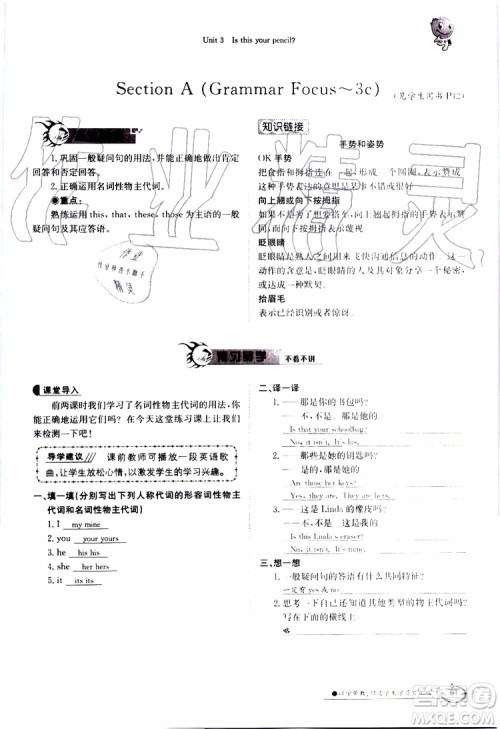 Unit 3 Is this your pencil?
Section A (Grammar Focus～3c)
1.巩固一般疑问句的用法,并能正确做出肯定
回答和否定回答。
2.正确运用名词性物主代词。
●重点:
熟练运用 this, that, these, those 为主语的一般
疑问句及其应答语。
知识链接
手势和姿势
OK 手势
向上翘或向下翘拇指
眨眼睛
眨眼睛是运用眼神的上下来飞快沟通信息的
动作。眨眼睛的人及其对象分享一个玩笑或表
示一种默契。
抬眉毛
表示认识或者惊讶。
预习导学
不看不讲
课堂导入
前两课时我们学习了名词性物主代词的用法,你
能正确地运用它们吗?在今天这堂练习课上让我们来
检测一下吧!
导学建议
课前教师可播放一段英语歌
曲,让学生放松心情,以激发学生的学习兴趣。
一、填一填(分别写出下列人称代词的形容词性物主
代词和名词性物主代词)
1. I my mine
2. you your yours
3. he his his
4. she her hers
5. it its its
二、译一译
1. ——那是你的书包吗?
——不,不是。那是他的。
—Is that your schoolbag?
—No, it isn't. It's his.
2. ——那些是她的钥匙吗?
——是的,是她的。
—Are those her keys?
—Yes, they are. They are hers.
3. ——这是 Linda 的橡皮吗?
——不,不是。这是我的。
—Is this Linda's eraser?
—No, it isn't. It's mine.
三、想一想
1. 一般疑问句的答语有什么共同特征?
一定有 yes 或 no
2. 思考一下自己还知道其他类型的物主代词吗?
写在下面的横线上。
略